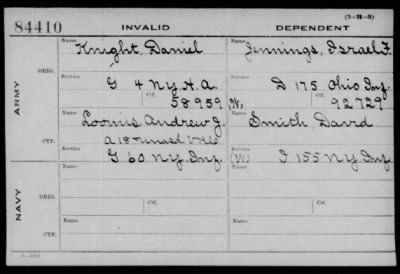 84410 INVALID DEPENDENT (3-H-3)
Name Knight, Daniel Name Jennings, Israel F.
ARMY ORIG. Service G 4 N.Y. H.A. Service D 175 Ohio Inf.
Ctf. 58959 (W.) Ctf. 92729
Name Loomis Andrew J. Name Smith, David
A 18 Unasd Vols
CTF. Service G 60 N.Y. Inf. Service (W) I 155 N.Y. Inf.
Name Name
NAVY ORIG.
Service Ctf. Service Ctf.
Name Name
CTF.
Service Service